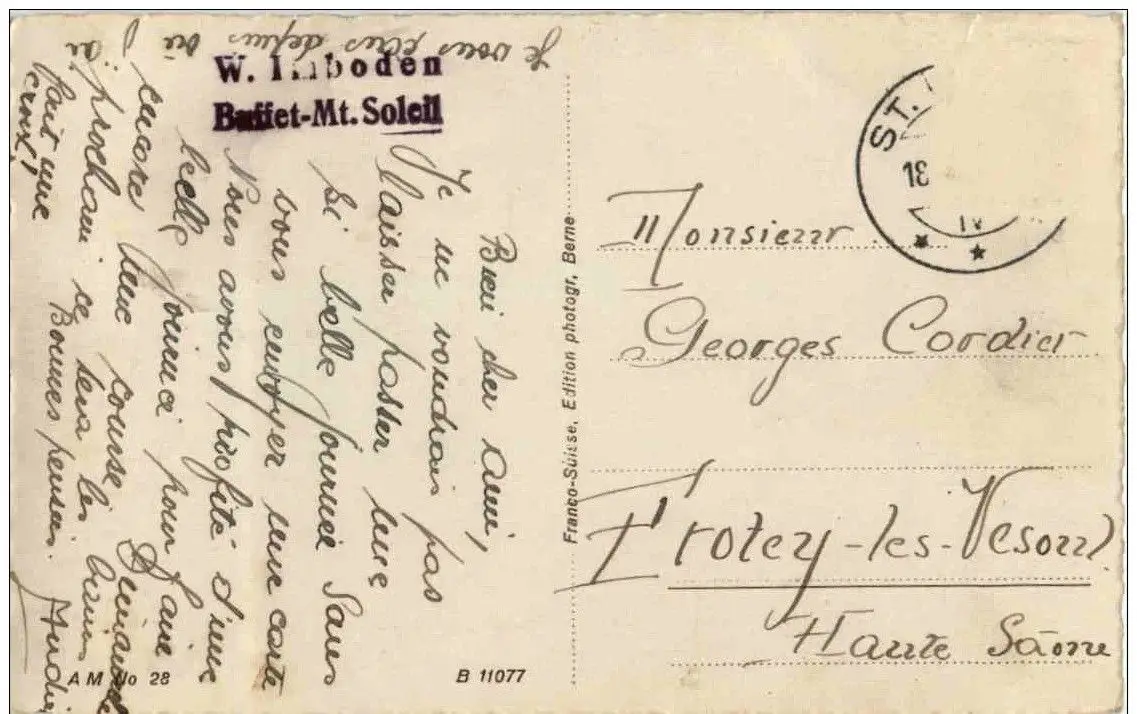 Je vous écris depuis où j'ai
fait une
croix!
W. Imboden
Buffet-Mt. Soleil
Bien cher ami,
Je ne voudrais pas
laisser passer une
si belle journée sans
vous envoyer une carte
Nous avons profité d'une
belle journée pour faire
encore une course Dimanche
prochain ce sera les
Bonnes pensées.
Franco-Suisse, Edition photogr, Berne
AM No 28
B 11077
ST.
18
IV
Monsieur
Georges Cordier
Frotey-les-Vesoul
Haute Saône